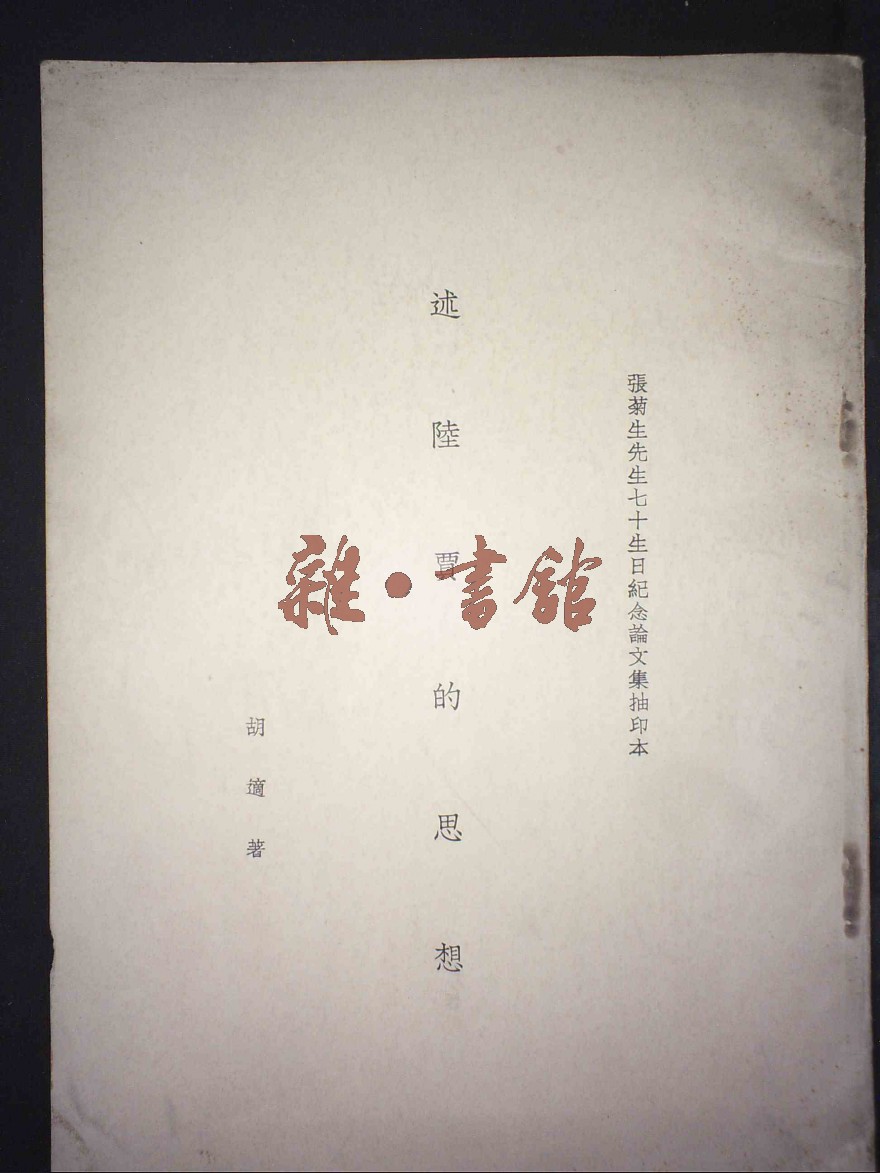 張菊生先生七十生日紀念論文集抽印本
述陸賈的思想
胡適著
雜·書館